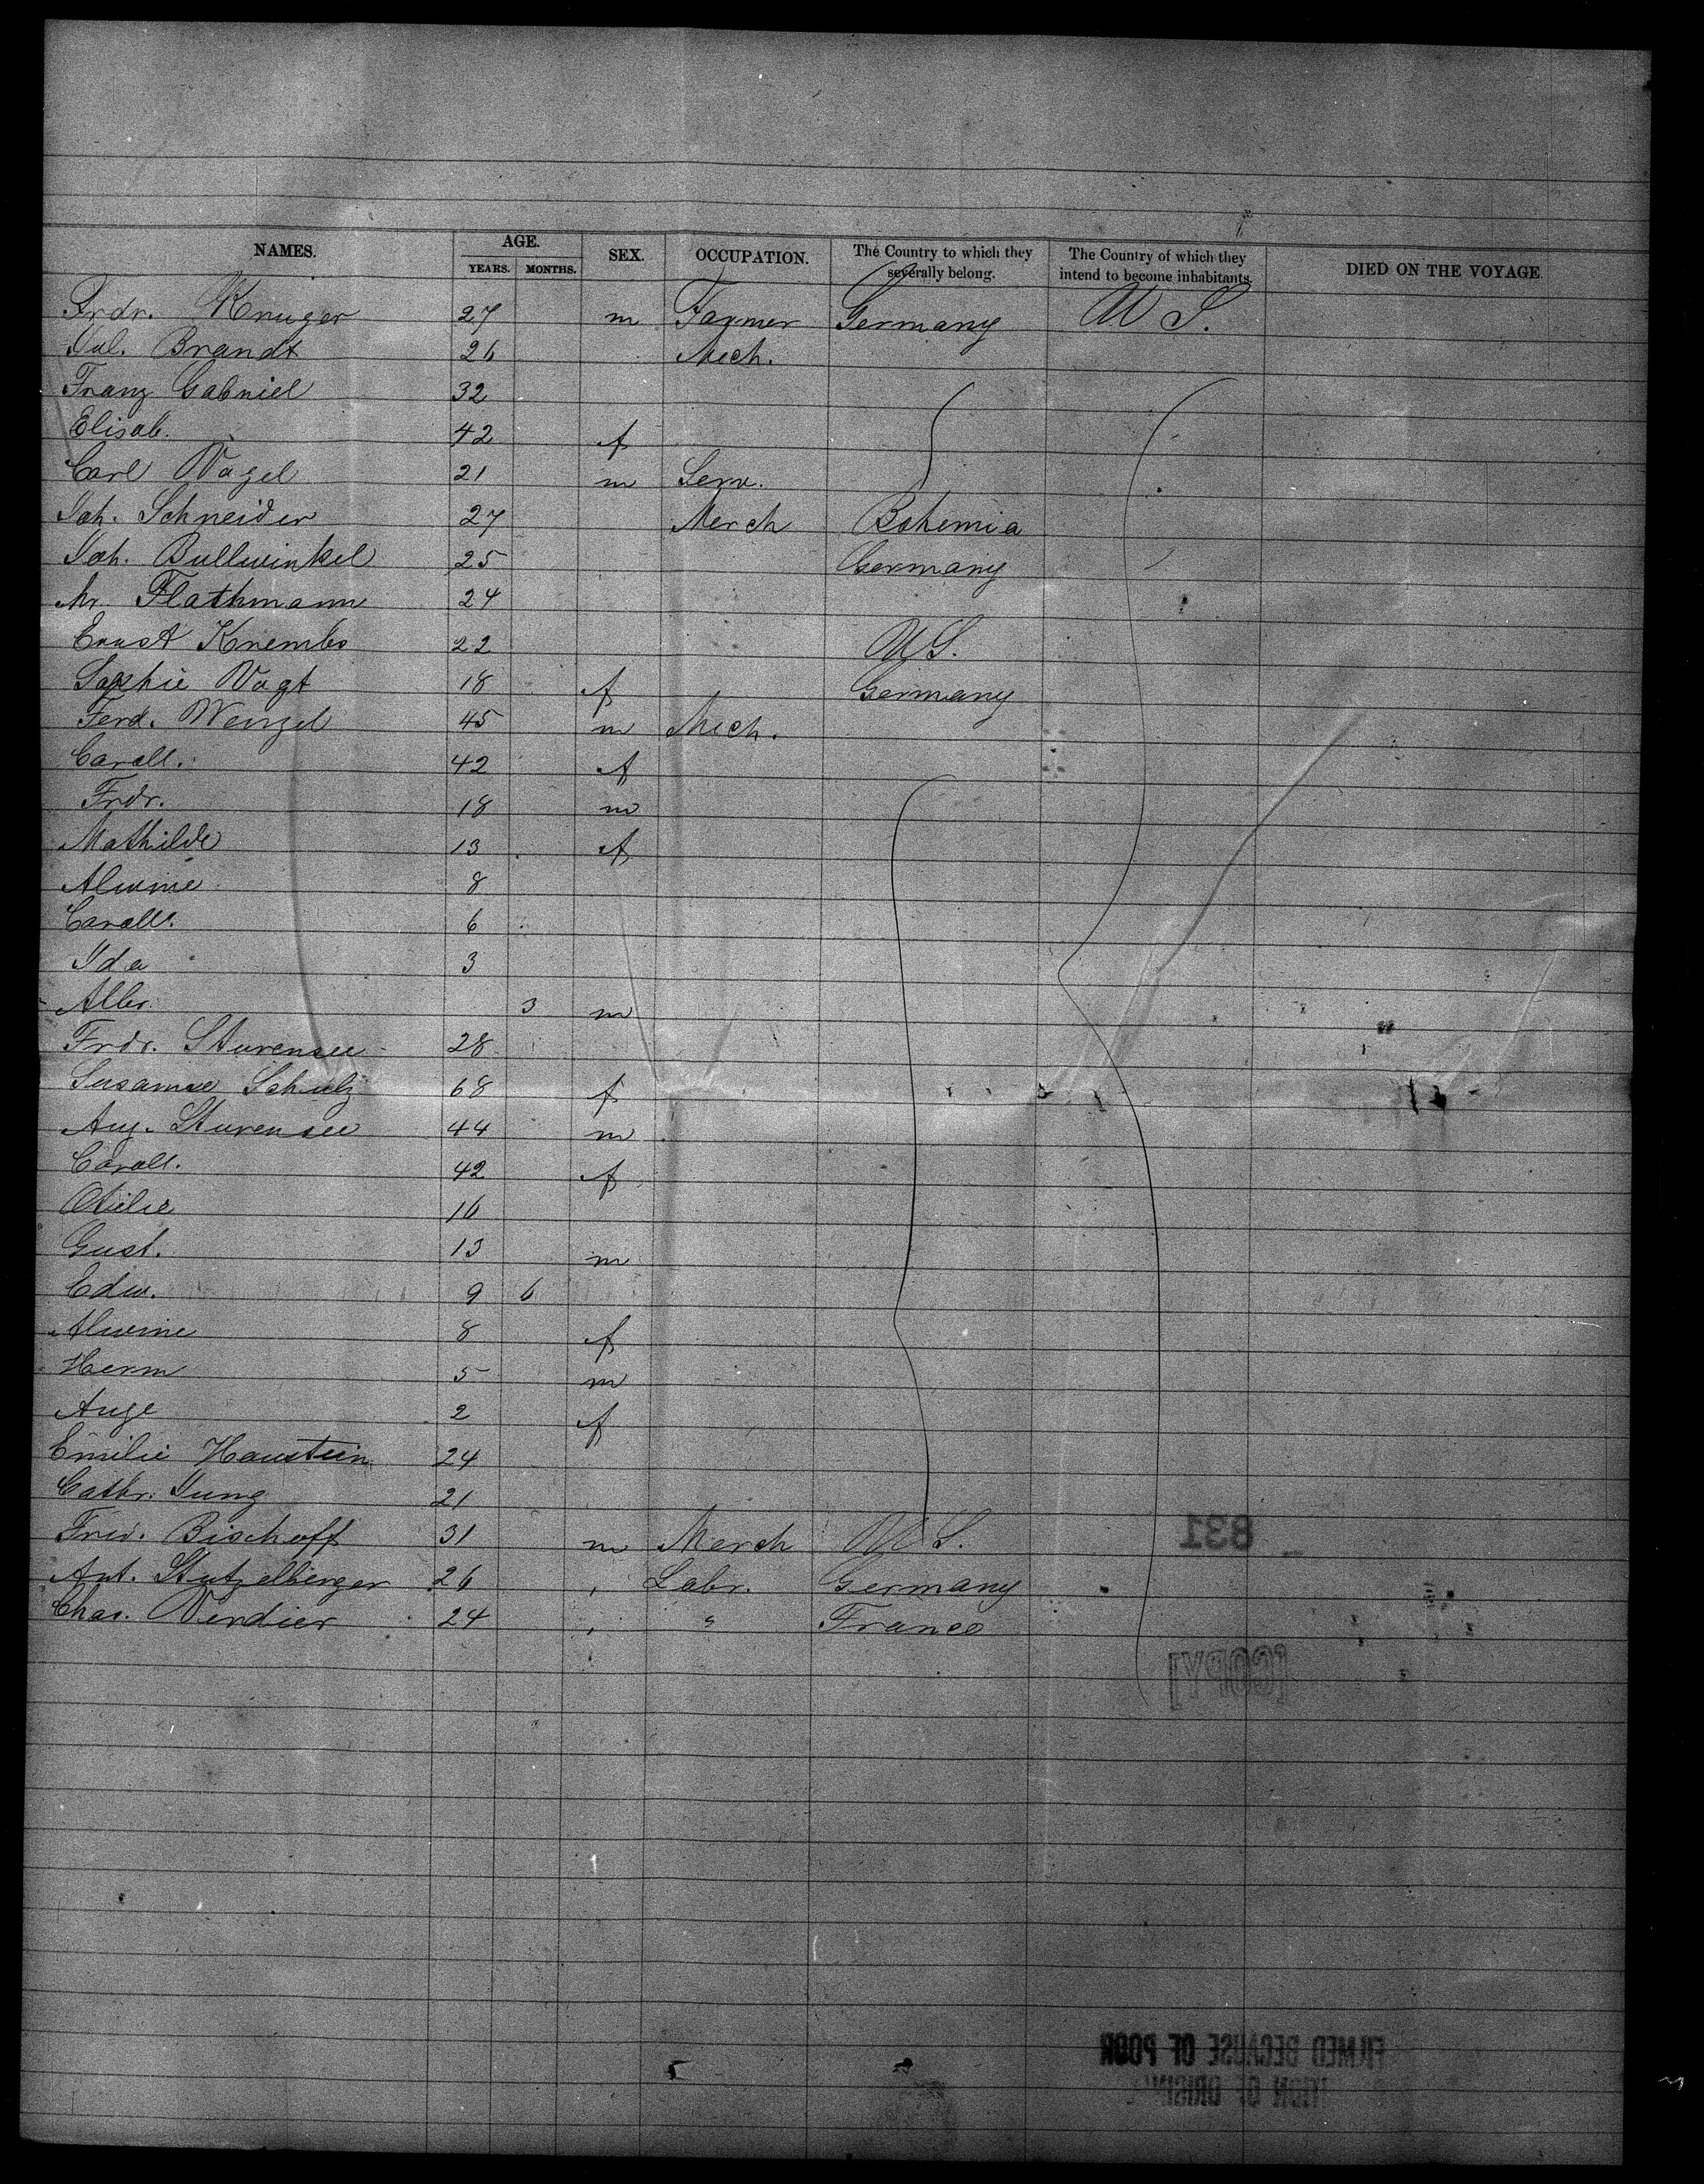 NAMES. AGE. SEX. OCCUPATION. The Country to which they severally belong. The Country of which they intend to become inhabitants. DIED ON THE VOYAGE.
YEARS. MONTHS.
Frdr. Kruger 27 m Farmer Germany U S.
Jul. Brandt 26 Mech.
Franz Gabriel 32
Elisab. 42 f
Carl Vogel 21 m Serv.
Joh. Schneider 27 Merch Bohemia
Joh. Bullwinkel 25 Germany
Mr. Flathmann 24
Ernst Krembs 22 U S.
Sophie Vogt 18 f Germany
Ferd. Wenzel 45 m Mech.
Caroll. 42 f
Frdr. 18 m
Mathilde 13 f
Alwine 8
Caroll. 6
Ida 3
Albr. 3 m
Frdr. Sturensee 28
Susanne Schulz 68 f
Aug. Sturensee 44 m
Caroll. 42 f
Otilie 16
Gust. 13 m
Edw. 9 6
Alwine 8 f
Herm 5 m
Auge 2 f
Emilie Haustein 24
Cathr. Jung 21
Fried. Bischoff 31 m Merch U S.
Ant. Stutzelberger 26 Labr. Germany
Chas. Verdier 24 " France
831
[COPY]
FILMED BECAUSE OF POOR